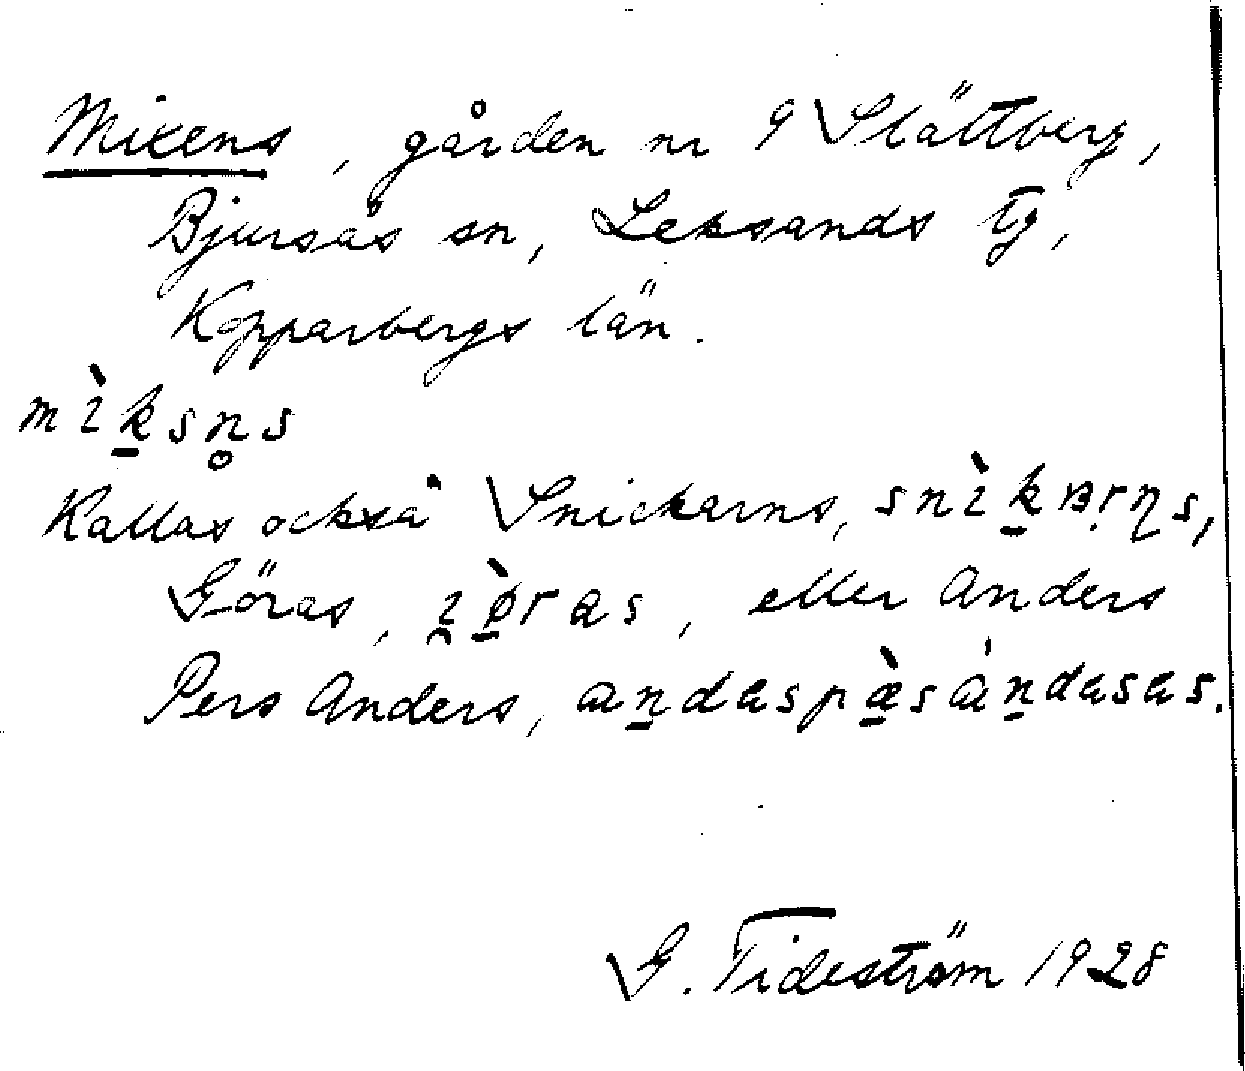 Mixens, gården nr 9 Slättberg,
Bjursås sn, Leksands tg,
Kopparbergs län.
mìk̠sn̥s
Kallas också Snickarns, snìk̠aṛɳs,
Göras, i̯ø̠̀ras, eller Anders
Pers Anders, an̠daspæ̠̀sán̠dasas.
G. Tideström 1928